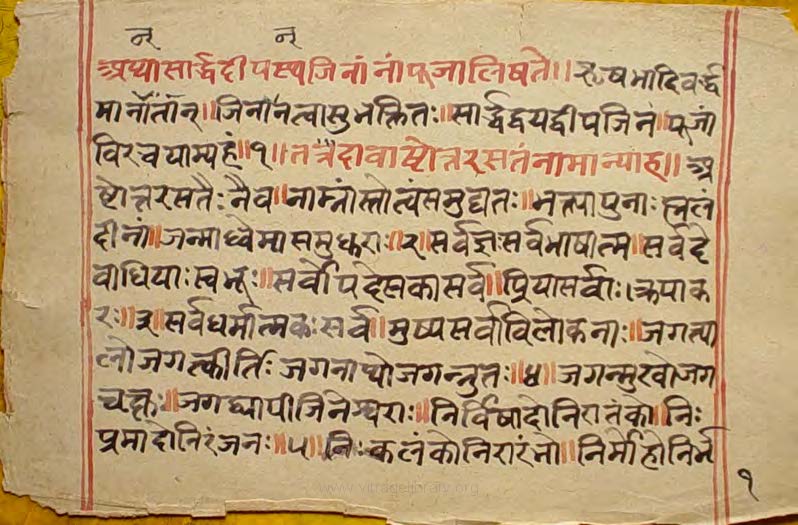 न् न्
अथ सार्द्धदीपस्थजिनांनां पूजा लिषते॥ ऋषभादिवर्द्ध
मानांतान्॥ जिनानत्वासुभक्तितः॥ सार्द्धद्वयद्वीपजिन॥ पूजां
विरचयाम्यहं॥१॥ तत्रैदावाष्टोत्तरसतंनामान्याह॥ अ
ष्टोत्तरसतैःनैव॥ नाम्नांस्तोत्यंसमुद्यतः॥ भक्त्यापुनाः
दीनां॥ जन्माघ्वेमासमुद्धराः॥२॥ सर्वज्ञःसर्वभाषात्म॥ सर्वदे
वाधियाःस्वभूः॥ सर्वोपदेसकासर्व॥ प्रियासर्वाः।क्रपाक
रः॥३॥ सर्वधर्मात्मकःसर्व॥ मुष्यसर्वाविलोकनाः॥ जगत्पा
लोजगत्कीर्तिः जगनाथोजगन्नुतः॥४॥ जगन्मुखोजग
चक्षुः॥ जगद्ध्यापीजिनेश्वराः॥ निर्विषादोनिरातंको॥ निः
प्रमादोनिरंजनः॥५॥ निःकलंकोनिरारंभो॥ निर्मोहोनिर्भ
१
www.vitragelibrary.org